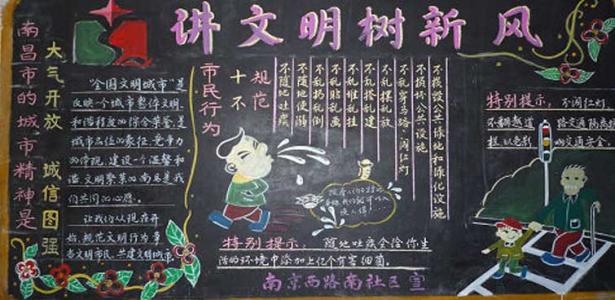 讲文明树新风
南昌市的城市精神是
大气开放 诚信图强
"全国文明城市"是
反映一个城市整体文明
和谐程度的综合荣誉是
城市品位的象征,竞争力
的体现,建设一个温馨和
谐文明繁荣的南昌是我
们共同的心愿。
让我们从现在开
始,规范文明行为争
当文明市民,共建文明城市
市民行为
十不
规范
不随地吐痰
不随地便溺
不乱扔乱倒
不乱贴乱画
不乱堆乱挂
不乱搭乱建
不乱摆乱放
不乱穿马路"闯红灯"
不损坏公共设施
不损毁公共绿地和绿化设施
特别提示:随地吐痰会给你生
活的环境中添加上亿个有害细菌
南京西路南社区宣
特别提示:不闯红灯
不翻越道路交通隔离护
栏